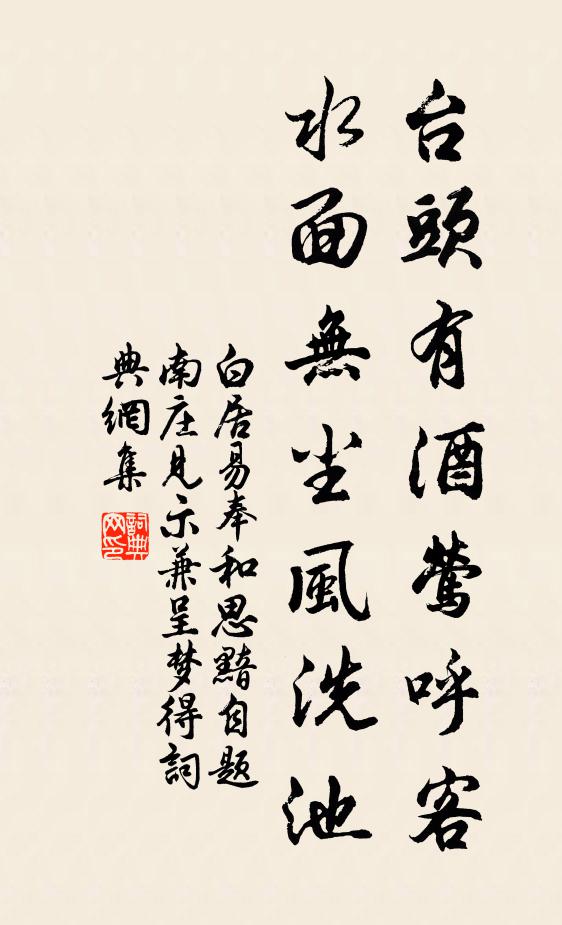 台頭有酒鶯呼客
水面無尘風洗池
白居易奉和思黯自题
南庄見示兼呈梦得詞
典網集
詞典
网印